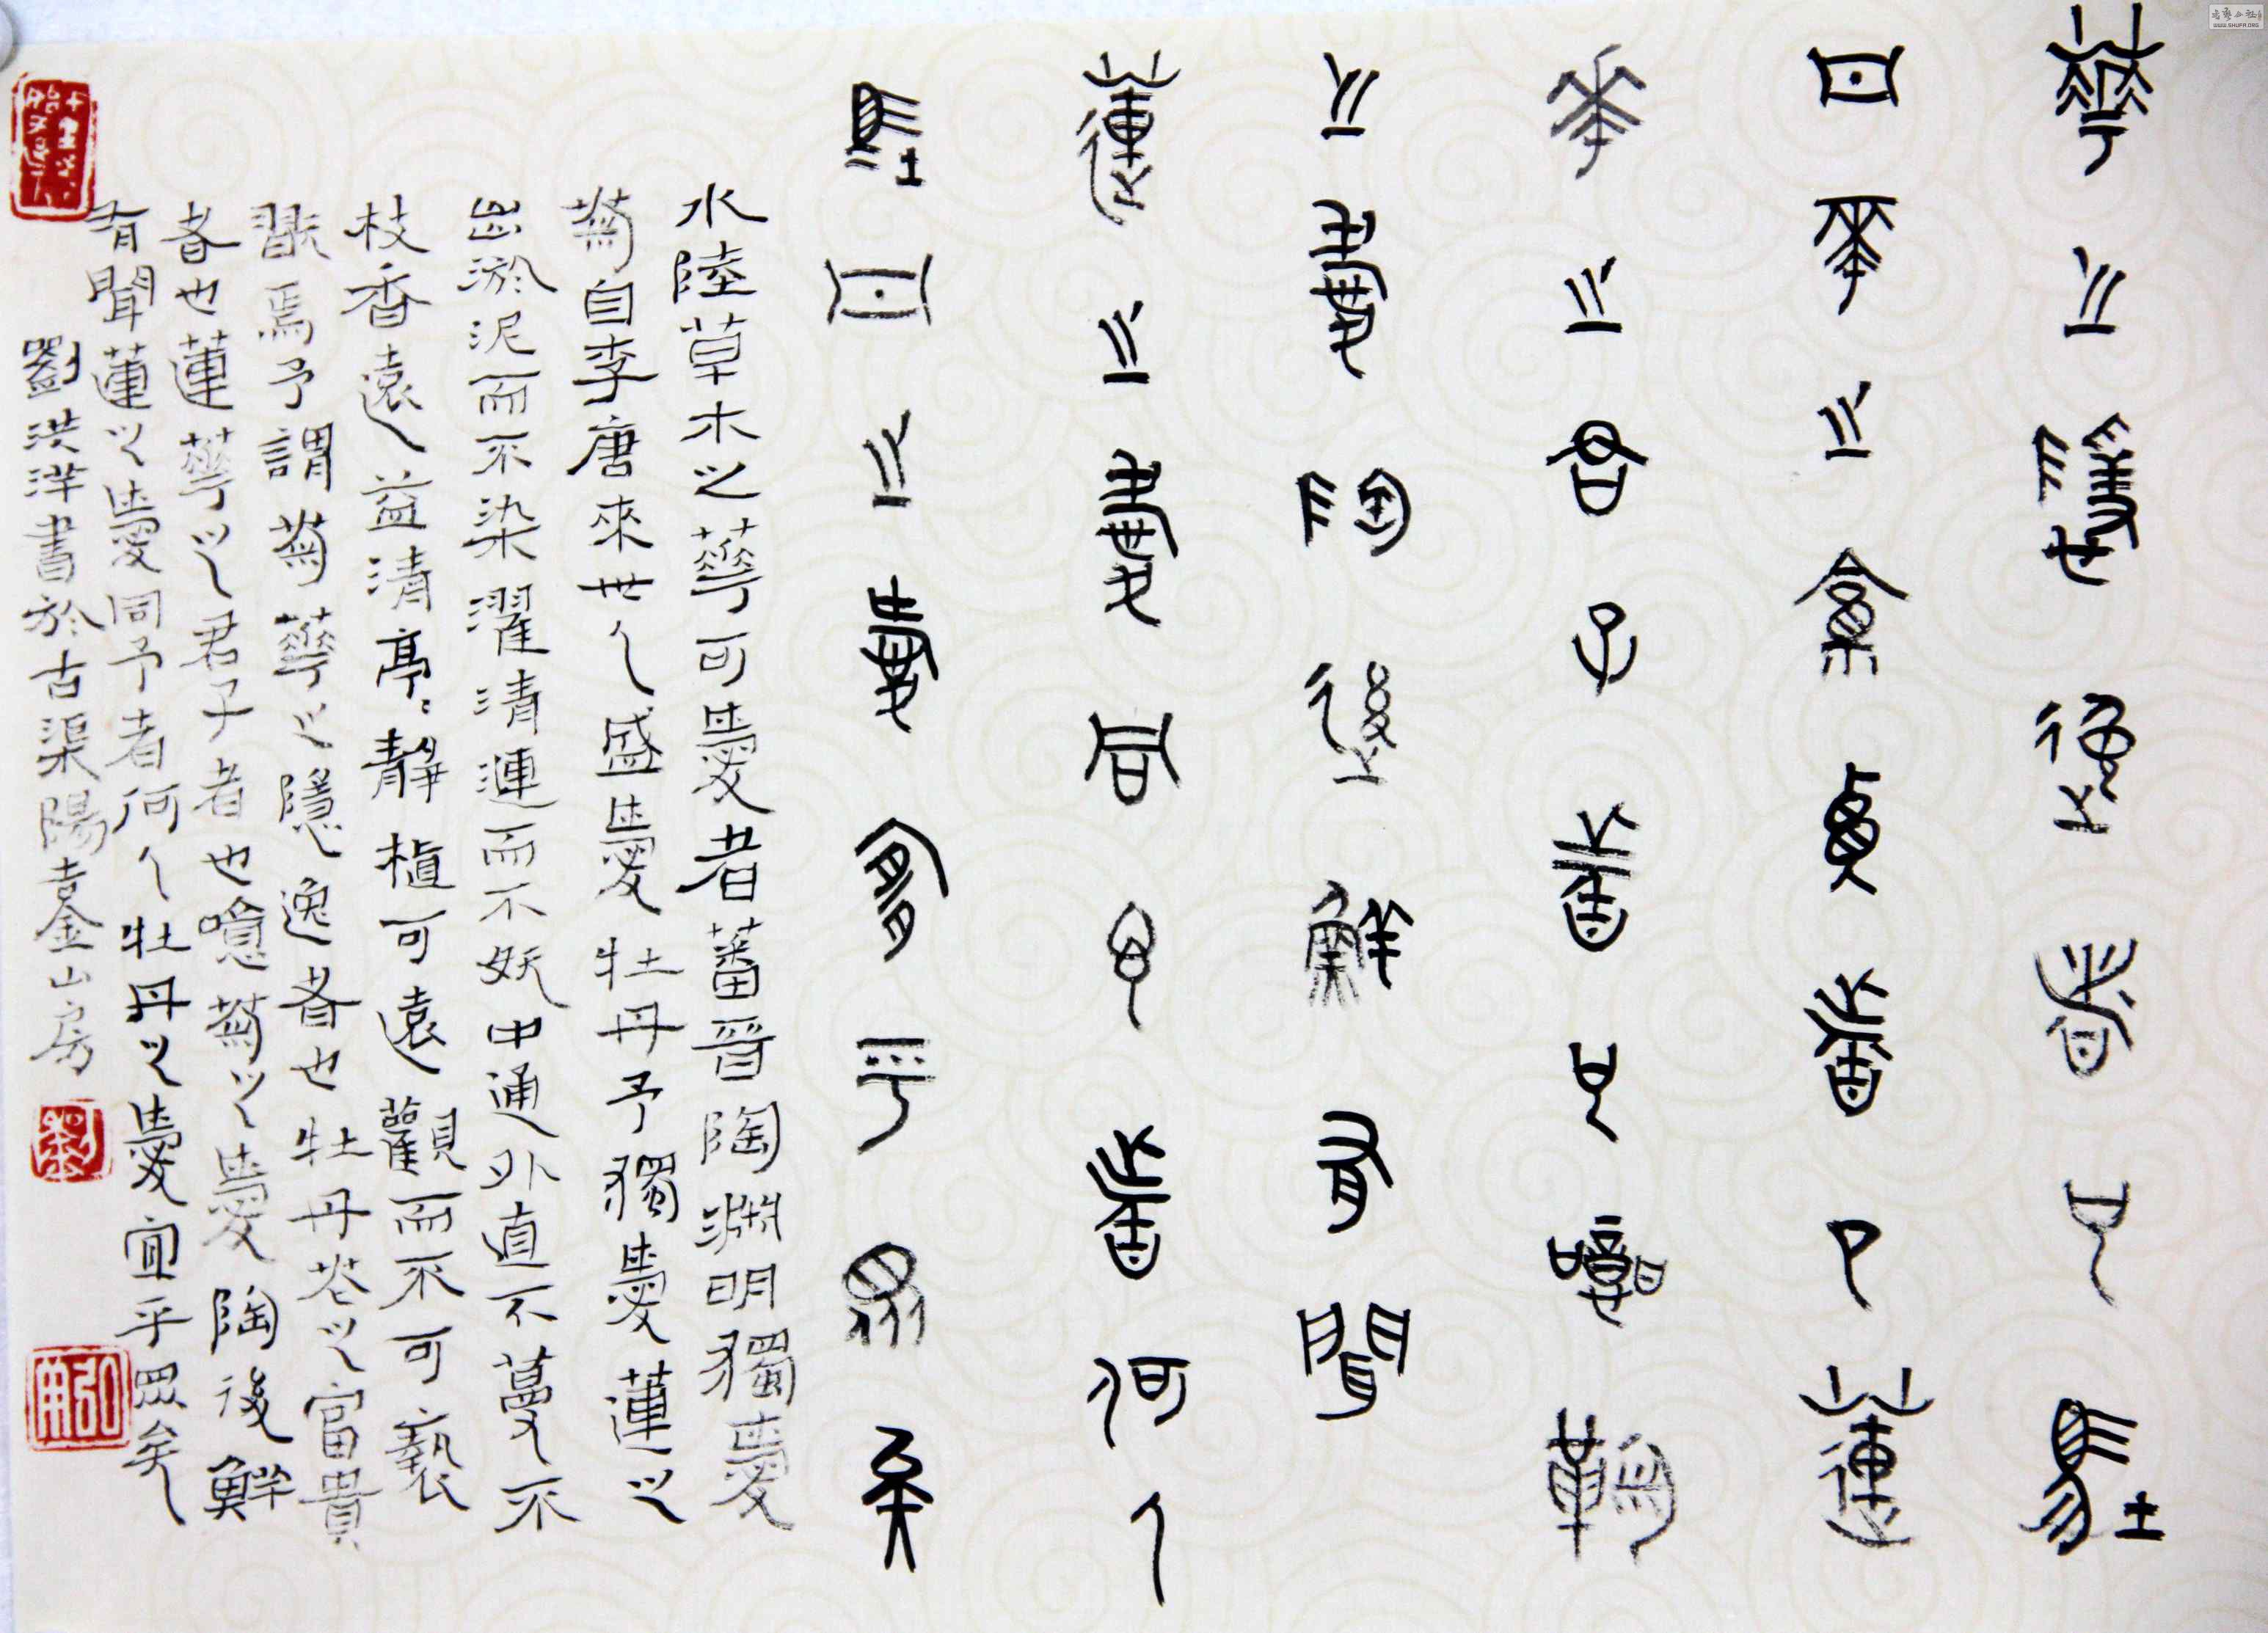 華之隱逸者也牡
丹華之富貴者也蓮
華之君子者也噫菊
之愛陶後鮮有聞
蓮之愛同予者何人
牡丹之愛宜乎眾矣
水陸草木之華可愛者蕃晉陶淵明獨愛
菊自李唐來世人盛愛牡丹予獨愛蓮之
出淤泥而不染濯清漣而不妖中通外直不蔓不
枝香遠益清亭〻靜植可遠觀而不可褻
翫焉予謂菊華之隱逸者也牡丹花之富貴
者也蓮華之君子者也噫菊之愛陶後鮮
有聞蓮之愛同予者何人牡丹之愛宜乎眾矣
劉洪洋書於古渠陽鼖金山房
WWW.SHUFA.ORG